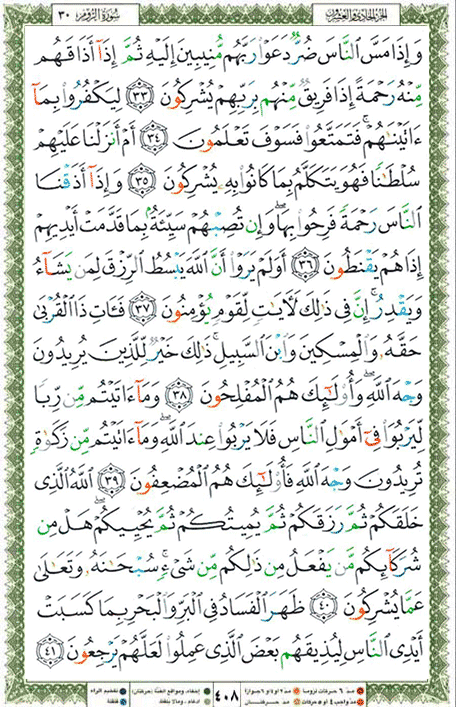 الجزء الحادي والعشرون
سورة الروم ٣٠
وَإِذَا مَسَّ النَّاسَ ضُرٌّ دَعَوْا رَبَّهُم مُّنِيبِينَ إِلَيْهِ ثُمَّ إِذَا أَذَاقَهُم
مِّنْهُ رَحْمَةً إِذَا فَرِيقٌ مِّنْهُم بِرَبِّهِمْ يُشْرِكُونَ ٣٣ لِيَكْفُرُوا بِمَا
ءَاتَيْنَٰهُمْ ۚ فَتَمَتَّعُوا فَسَوْفَ تَعْلَمُونَ ٣٤ أَمْ أَنزَلْنَا عَلَيْهِمْ
سُلْطَٰنًا فَهُوَ يَتَكَلَّمُ بِمَا كَانُوا بِهِۦ يُشْرِكُونَ ٣٥ وَإِذَآ أَذَقْنَا
النَّاسَ رَحْمَةً فَرِحُوا بِهَا ۖ وَإِن تُصِبْهُمْ سَيِّئَةٌۢ بِمَا قَدَّمَتْ أَيْدِيهِمْ
إِذَا هُمْ يَقْنَطُونَ ٣٦ أَوَلَمْ يَرَوْا أَنَّ اللَّهَ يَبْسُطُ الرِّزْقَ لِمَن يَشَآءُ
وَيَقْدِرُ ۚ إِنَّ فِي ذَٰلِكَ لَءَايَٰتٍ لِّقَوْمٍ يُؤْمِنُونَ ٣٧ فَـَٔاتِ ذَا الْقُرْبَىٰ
حَقَّهُۥ وَالْمِسْكِينَ وَابْنَ السَّبِيلِ ۚ ذَٰلِكَ خَيْرٌ لِّلَّذِينَ يُرِيدُونَ
وَجْهَ اللَّهِ ۖ وَأُولَٰٓئِكَ هُمُ الْمُفْلِحُونَ ٣٨ وَمَآ ءَاتَيْتُم مِّن رِّبًا
لِّيَرْبُوَا فِيٓ أَمْوَٰلِ النَّاسِ فَلَا يَرْبُوا عِندَ اللَّهِ ۖ وَمَآ ءَاتَيْتُم مِّن زَكَوٰةٍ
تُرِيدُونَ وَجْهَ اللَّهِ فَأُولَٰٓئِكَ هُمُ الْمُضْعِفُونَ ٣٩ اللَّهُ الَّذِي
خَلَقَكُمْ ثُمَّ رَزَقَكُمْ ثُمَّ يُمِيتُكُمْ ثُمَّ يُحْيِيكُمْ ۖ هَلْ مِن
شُرَكَآئِكُم مَّن يَفْعَلُ مِن ذَٰلِكُم مِّن شَيْءٍ ۚ سُبْحَٰنَهُۥ وَتَعَٰلَىٰ
عَمَّا يُشْرِكُونَ ٤٠ ظَهَرَ الْفَسَادُ فِي الْبَرِّ وَالْبَحْرِ بِمَا كَسَبَتْ
أَيْدِي النَّاسِ لِيُذِيقَهُم بَعْضَ الَّذِي عَمِلُوا لَعَلَّهُمْ يَرْجِعُونَ ٤١
مدّ ٦ حركات لزوماً مدّ ٢ أو ٤ أو ٦ جوازاً
مدّ واجب ٤ أو ٥ حركات مدّ حركتان
٤٠٨
إخفاء، ومواقع الغُنَّة (حركتان) تفخيم الراء
إدغام، وما لا يُلفظ قلقلة